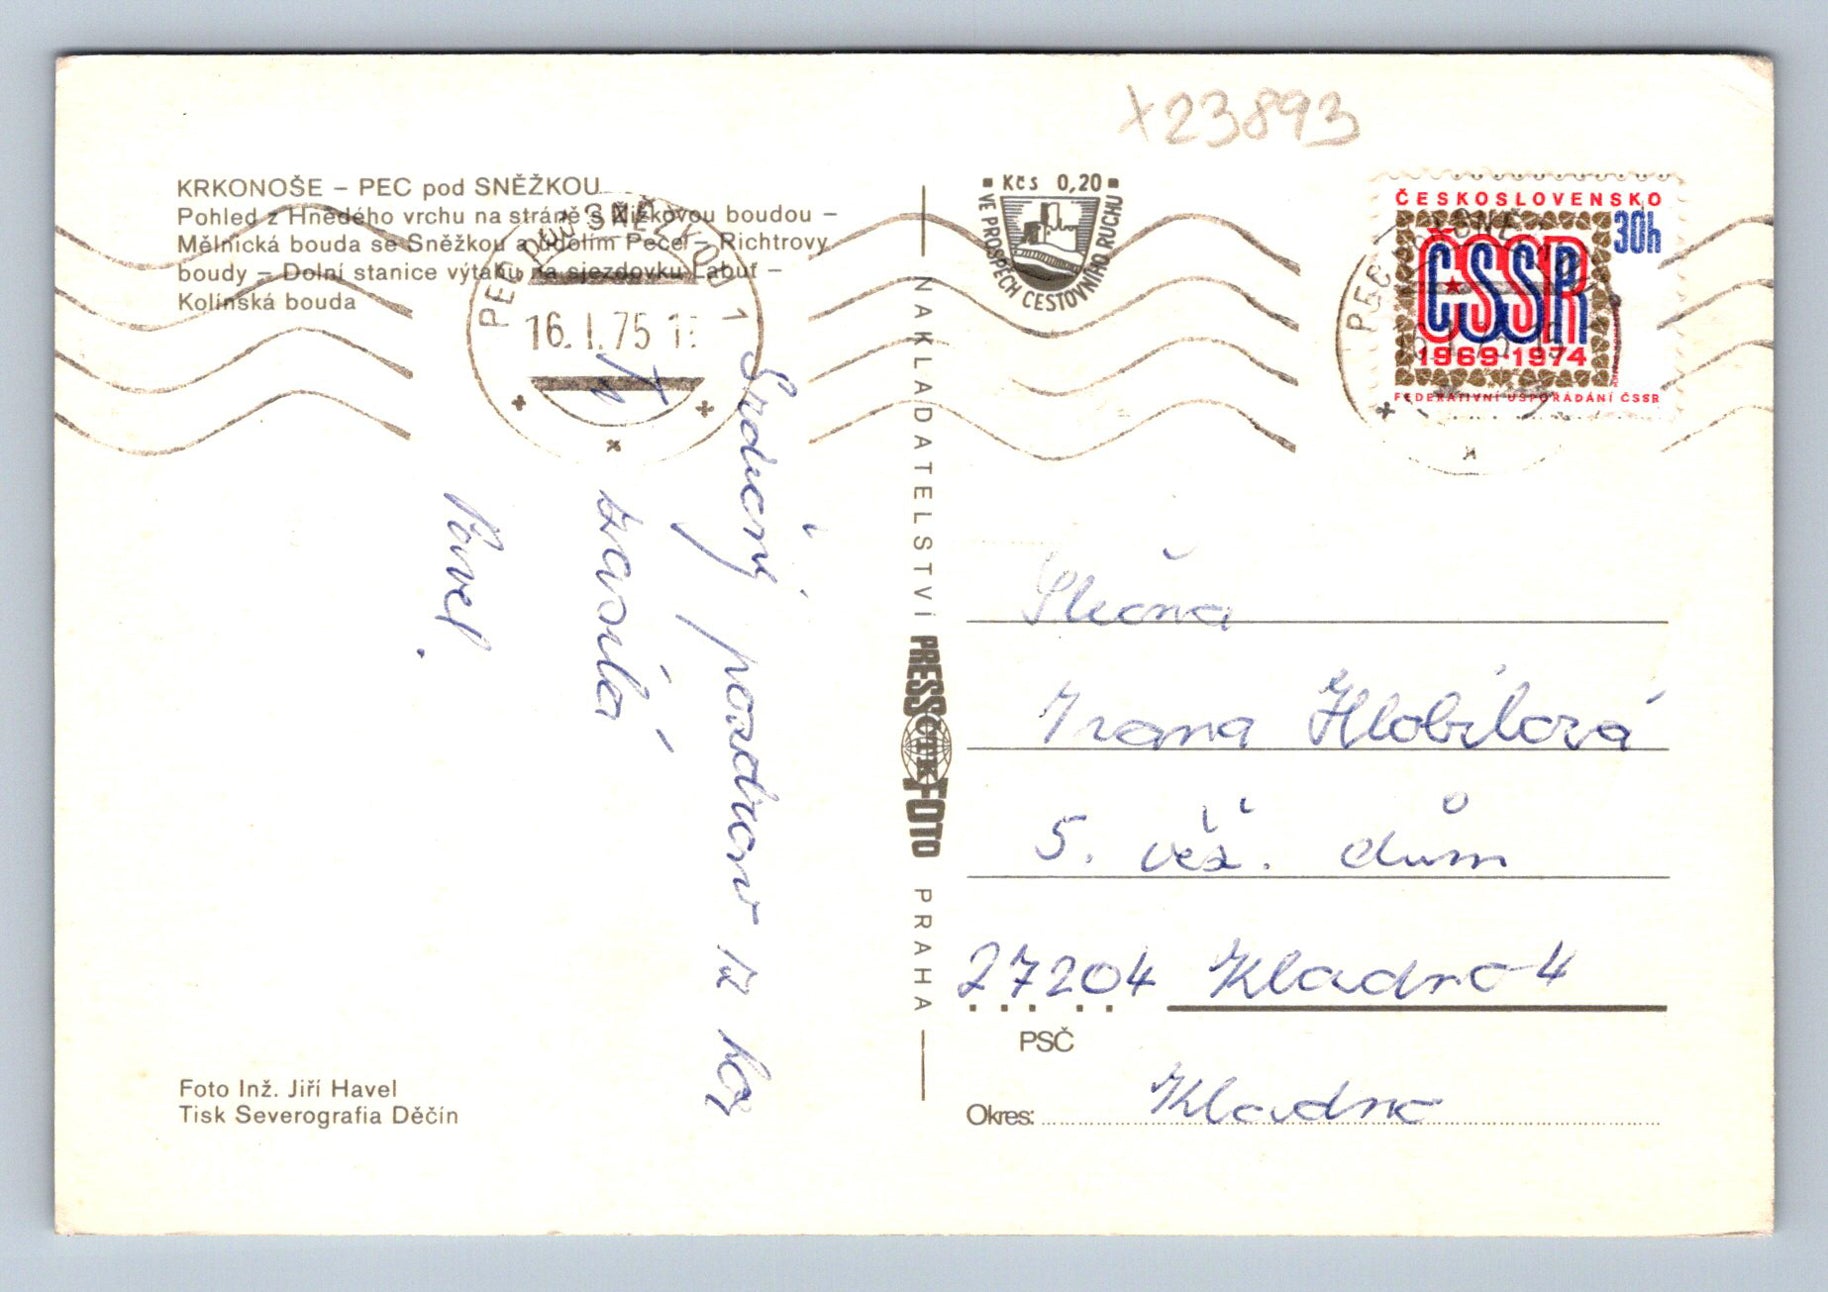 x23893
KRKONOŠE – PEC pod SNĚŽKOU
Pohled z Hnědého vrchu na stráně s Kižkovou boudou –
Mělnická bouda se Sněžkou a údolím Pece – Richtrovy
boudy – Dolní stanice výtahu na sjezdovku Labuť –
Kolínská bouda
PEC POD SNĚŽKOU 1
16. I. 75
Srdečný pozdrav z hor
zasílá
Pavel.
Foto Inž. Jiří Havel
Tisk Severografia Děčín
NAKLADATELSTVÍ PRESSFOTO PRAHA
ČTK
Kčs 0,20
VE PROSPĚCH CESTOVNÍHO RUCHU
ČESKOSLOVENSKO
30h
ČSSR
1969-1974
FEDERATIVNÍ USPOŘÁDÁNÍ ČSSR
Slečna
Ivana Hlobilová
5. věž. dům
27204 Kladno 4
PSČ
Okres: Kladno